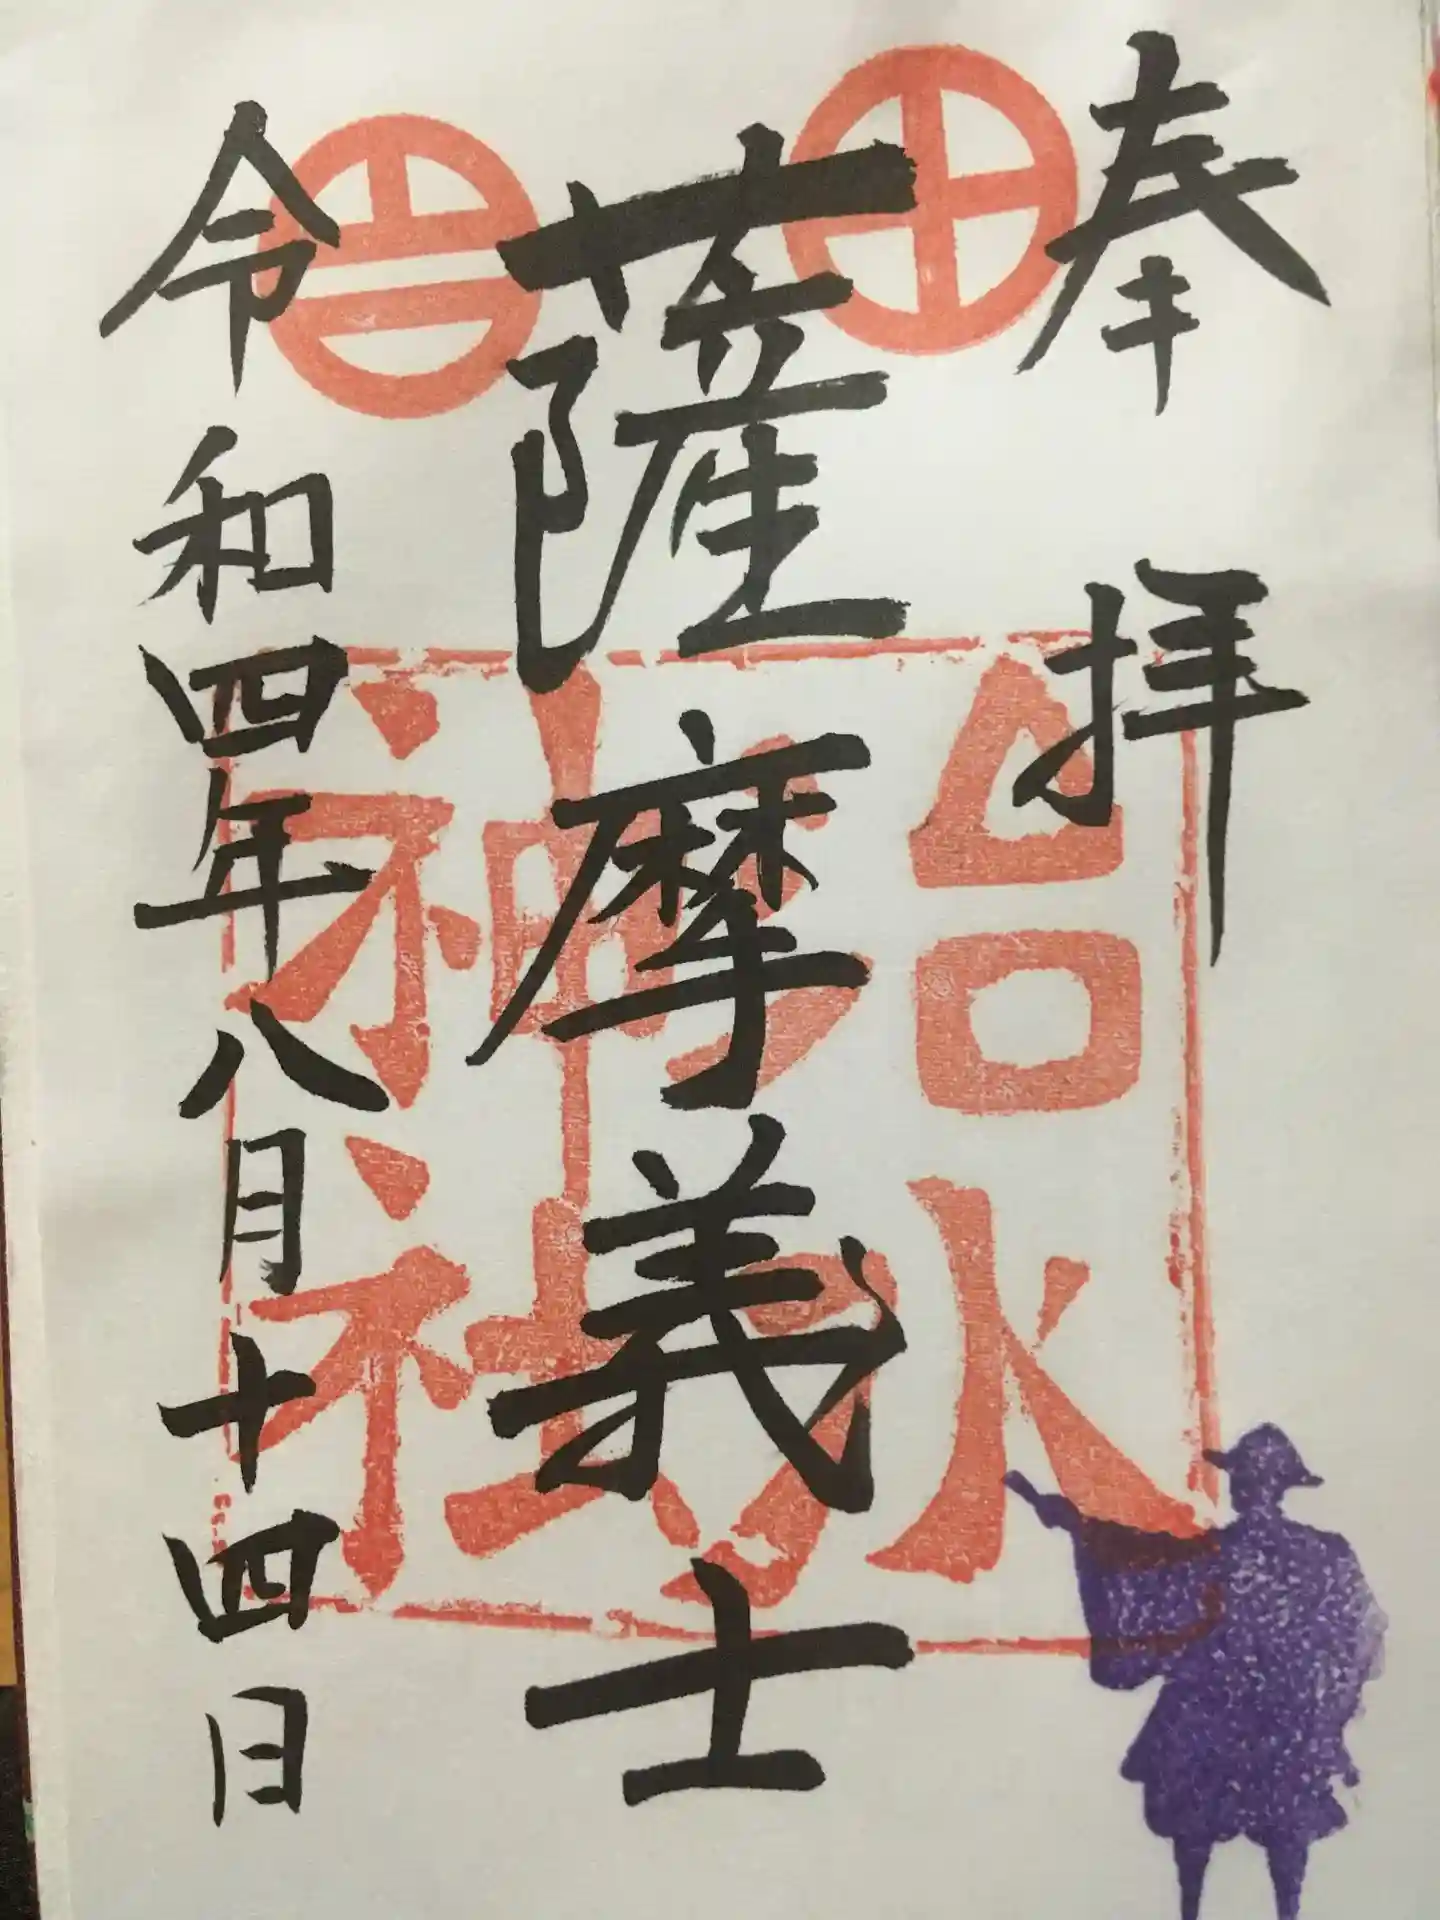 奉拝
薩摩義士
治水神社
令和四年八月十四日